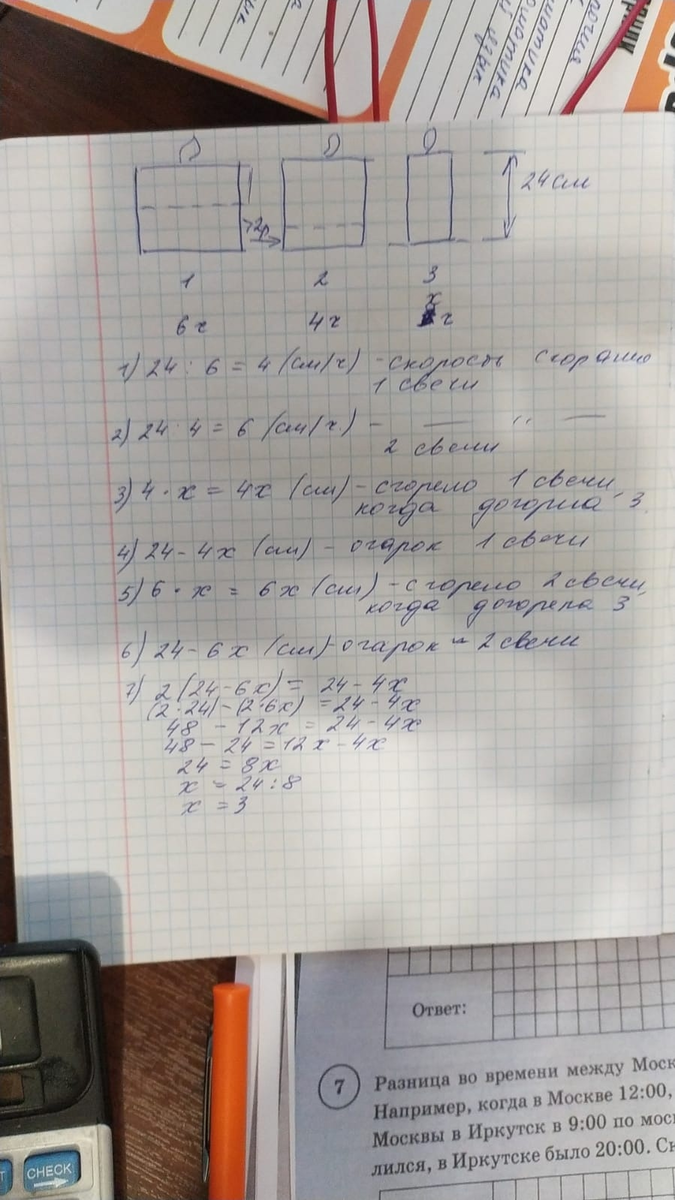 24 см
2р
1 2 3
х
6 ч 4 ч ч
1) 24 : 6 = 4 (см/ч) - скорость сгорания
1 свечи
2) 24 : 4 = 6 (см/ч) - — " —
2 свечи
3) 4 · х = 4х (см) - сгорело 1 свечи,
когда догорела 3
4) 24 - 4х (см) - огарок 1 свечи
5) 6 · х = 6х (см) - сгорело 2 свечи,
когда догорела 3
6) 24 - 6х (см) - огарок - 2 свечи
7) 2 (24 - 6х) = 24 - 4х
(2·24) - (2·6х) = 24 - 4х
48 - 12х = 24 - 4х
48 - 24 = 12х - 4х
24 = 8х
х = 24 : 8
х = 3
Ответ:
7 Разница во времени между Моск
Например, когда в Москве 12:00,
Москвы в Иркутск в 9:00 по моск
лился, в Иркутске было 20:00. Ск
CHECK